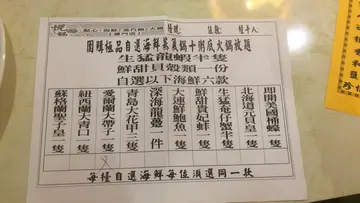 點心
枱號: 位數: 經手人:
團購極品自選海鮮蒸氣鍋+粥底火鍋放題
生猛龍蝦半隻
鮮甜貝殼類一份
自選以下海鮮六款
即開美國桶蠔一隻
北海道元貝皇一隻
生猛奄仔蟹半隻
鮮甜貴妃蚌一隻
大連鮮鮑魚一隻
深海龍躉一件
青島大花甲三隻
愛爾蘭大帶子一隻
紐西蘭大青口一隻
蘇格蘭聖子皇一隻
每檯自選海鮮每位須選同一款